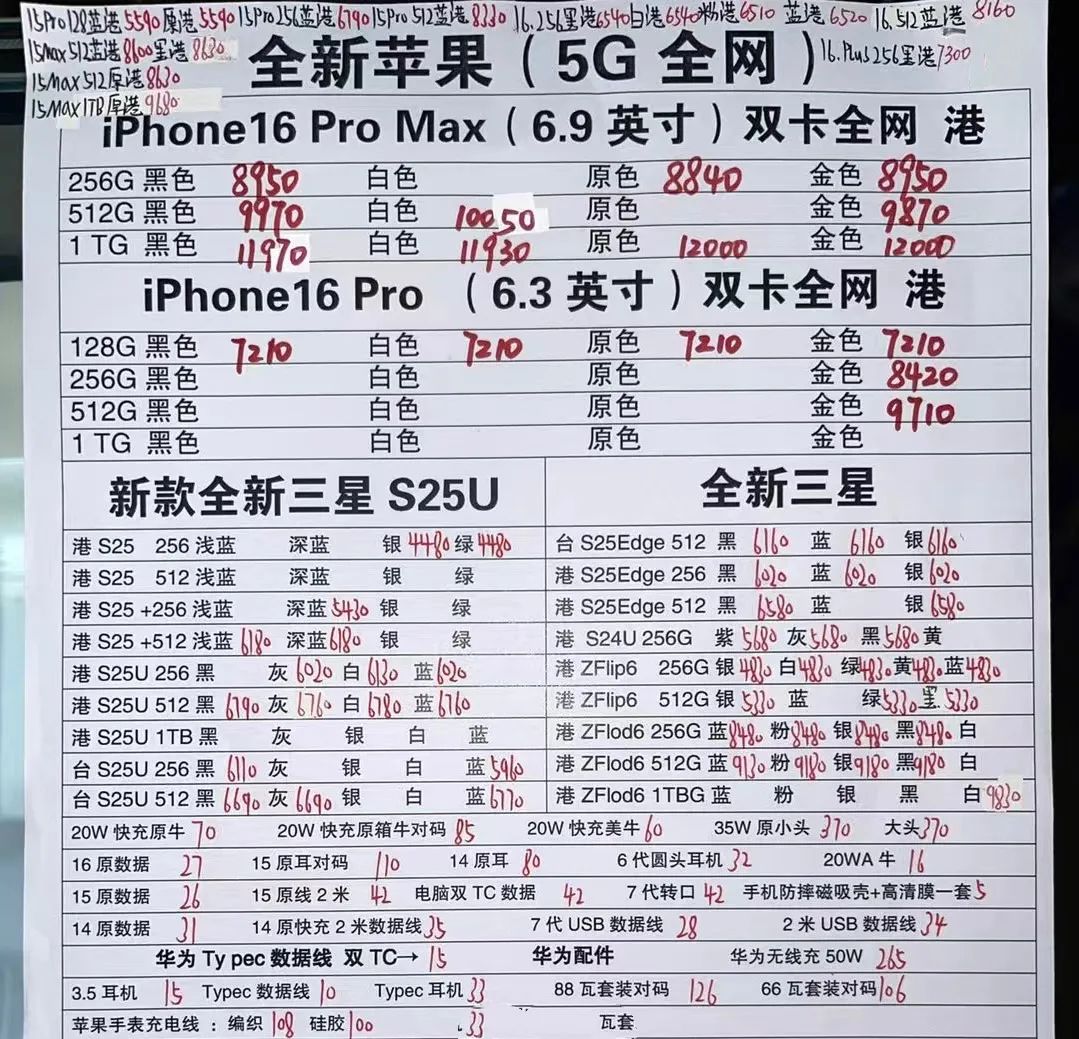 15Pro128蓝港5590原港5590 15Pro256蓝港6790 15Pro512蓝港8330 16.256黑港6540白港6540粉港6510 蓝港6520 16.512蓝港 8160
15Max512蓝港8600黑港8630
15Max512原港8630
15Max1TB原港9680
16.Plus256黑港7300
全新苹果（5G 全网）
iPhone16 Pro Max（6.9 英寸）双卡全网 港
256G 黑色 8950 白色 原色 8840 金色 8950
512G 黑色 9970 白色 10050 原色 金色 9870
1 TG 黑色 11970 白色 11930 原色 12000 金色 12000
iPhone16 Pro （6.3 英寸）双卡全网 港
128G 黑色 7210 白色 7210 原色 7210 金色 7210
256G 黑色 白色 原色 金色 8420
512G 黑色 白色 原色 金色 9710
1 TG 黑色 白色 原色 金色
新款全新三星 S25U
港 S25 256 浅蓝 深蓝 银 4480 绿 4480
港 S25 512 浅蓝 深蓝 银 绿
港 S25 +256 浅蓝 深蓝 5430 银 绿
港 S25 +512 浅蓝 6180 深蓝 6180 银 绿
港 S25U 256 黑 灰 6020 白 6130 蓝 6020
港 S25U 512 黑 6790 灰 6760 白 6780 蓝 6760
港 S25U 1TB 黑 灰 银 白 蓝
台 S25U 256 黑 6110 灰 银 白 蓝 5960
台 S25U 512 黑 6690 灰 6690 银 白 蓝 6770
全新三星
台 S25Edge 512 黑 6160 蓝 6160 银 6160
港 S25Edge 256 黑 6020 蓝 6020 银 6020
港 S25Edge 512 黑 6580 蓝 银 6580
港 S24U 256G 紫 5680 灰 5680 黑 5680 黄
港 ZFlip6 256G 银 4830 白 4830 绿 4830 黄 4830 蓝 4830
港 ZFlip6 512G 银 5330 蓝 绿 5330 黑.5330
港 ZFlod6 256G 蓝 8480 粉 8480 银 8480 黑 8480 白
港 ZFlod6 512G 蓝 9130 粉 9180 银 9180 黑 9180 白
港 ZFlod6 1TBG 蓝 粉 银 黑 白 9830
20W 快充原牛 70 20W 快充原箱牛对码 85 20W 快充美牛 60 35W 原小头 370 大头 370
16 原数据 27 15 原耳对码 110 14 原耳 80 6 代圆头耳机 32 20WA 牛 16
15 原数据 26 15 原线 2 米 42 电脑双 TC 数据 42 7 代转口 42 手机防摔磁吸壳+高清膜一套 5
14 原数据 31 14 原快充 2 米数据线 35 7 代 USB 数据线 28 2 米 USB 数据线 34
华为 Ty pec 数据线 双 TC→ 15 华为配件 华为无线充 50W 265
3.5 耳机 15 Typec 数据线 10 Typec 耳机 33 88 瓦套装对码 126 66 瓦套装对码 106
苹果手表充电线 ：编织 108 硅胶 100 33 瓦套